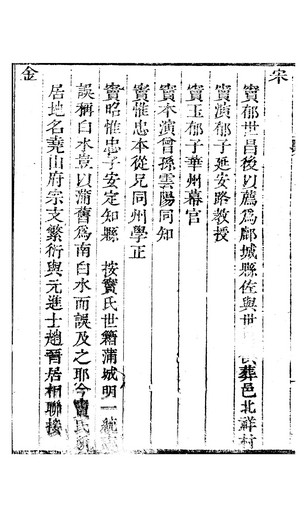 宋
竇郁世昌後以薦為鄜城縣佐與世 民葬邑北祥村
竇演郁子延安路教授
竇玉郁子華州幕官
竇本演曾孫雲陽同知
竇惟忠本從兄同州學正
竇昭惟忠子安定知縣 按竇氏世籍蒲城明一統
誤稱白水豈以蒲舊為南白水而誤及之耶今竇氏
居地名堯山府宗支繁衍與元進士趙晉居相聯接
金